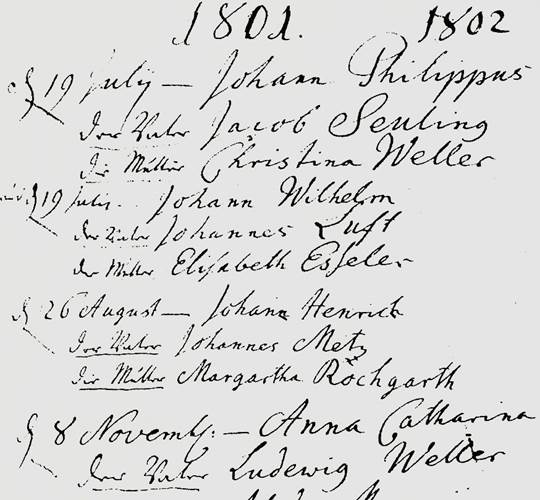 1801. 1802
19 July — Johann Philippus
der Vater Jacob Seuling
die Mutter Christina Weller
19 July. Johann Wilhelm
der Vater Johannes Luft
die Mutter Elisabeth Esseler
26 August — Johann Henrich
der Vater Johannes Metz
die Mutter Margartha Röchgarth
8 Novemb: — Anna Catharina
der Vater Ludewig Weller